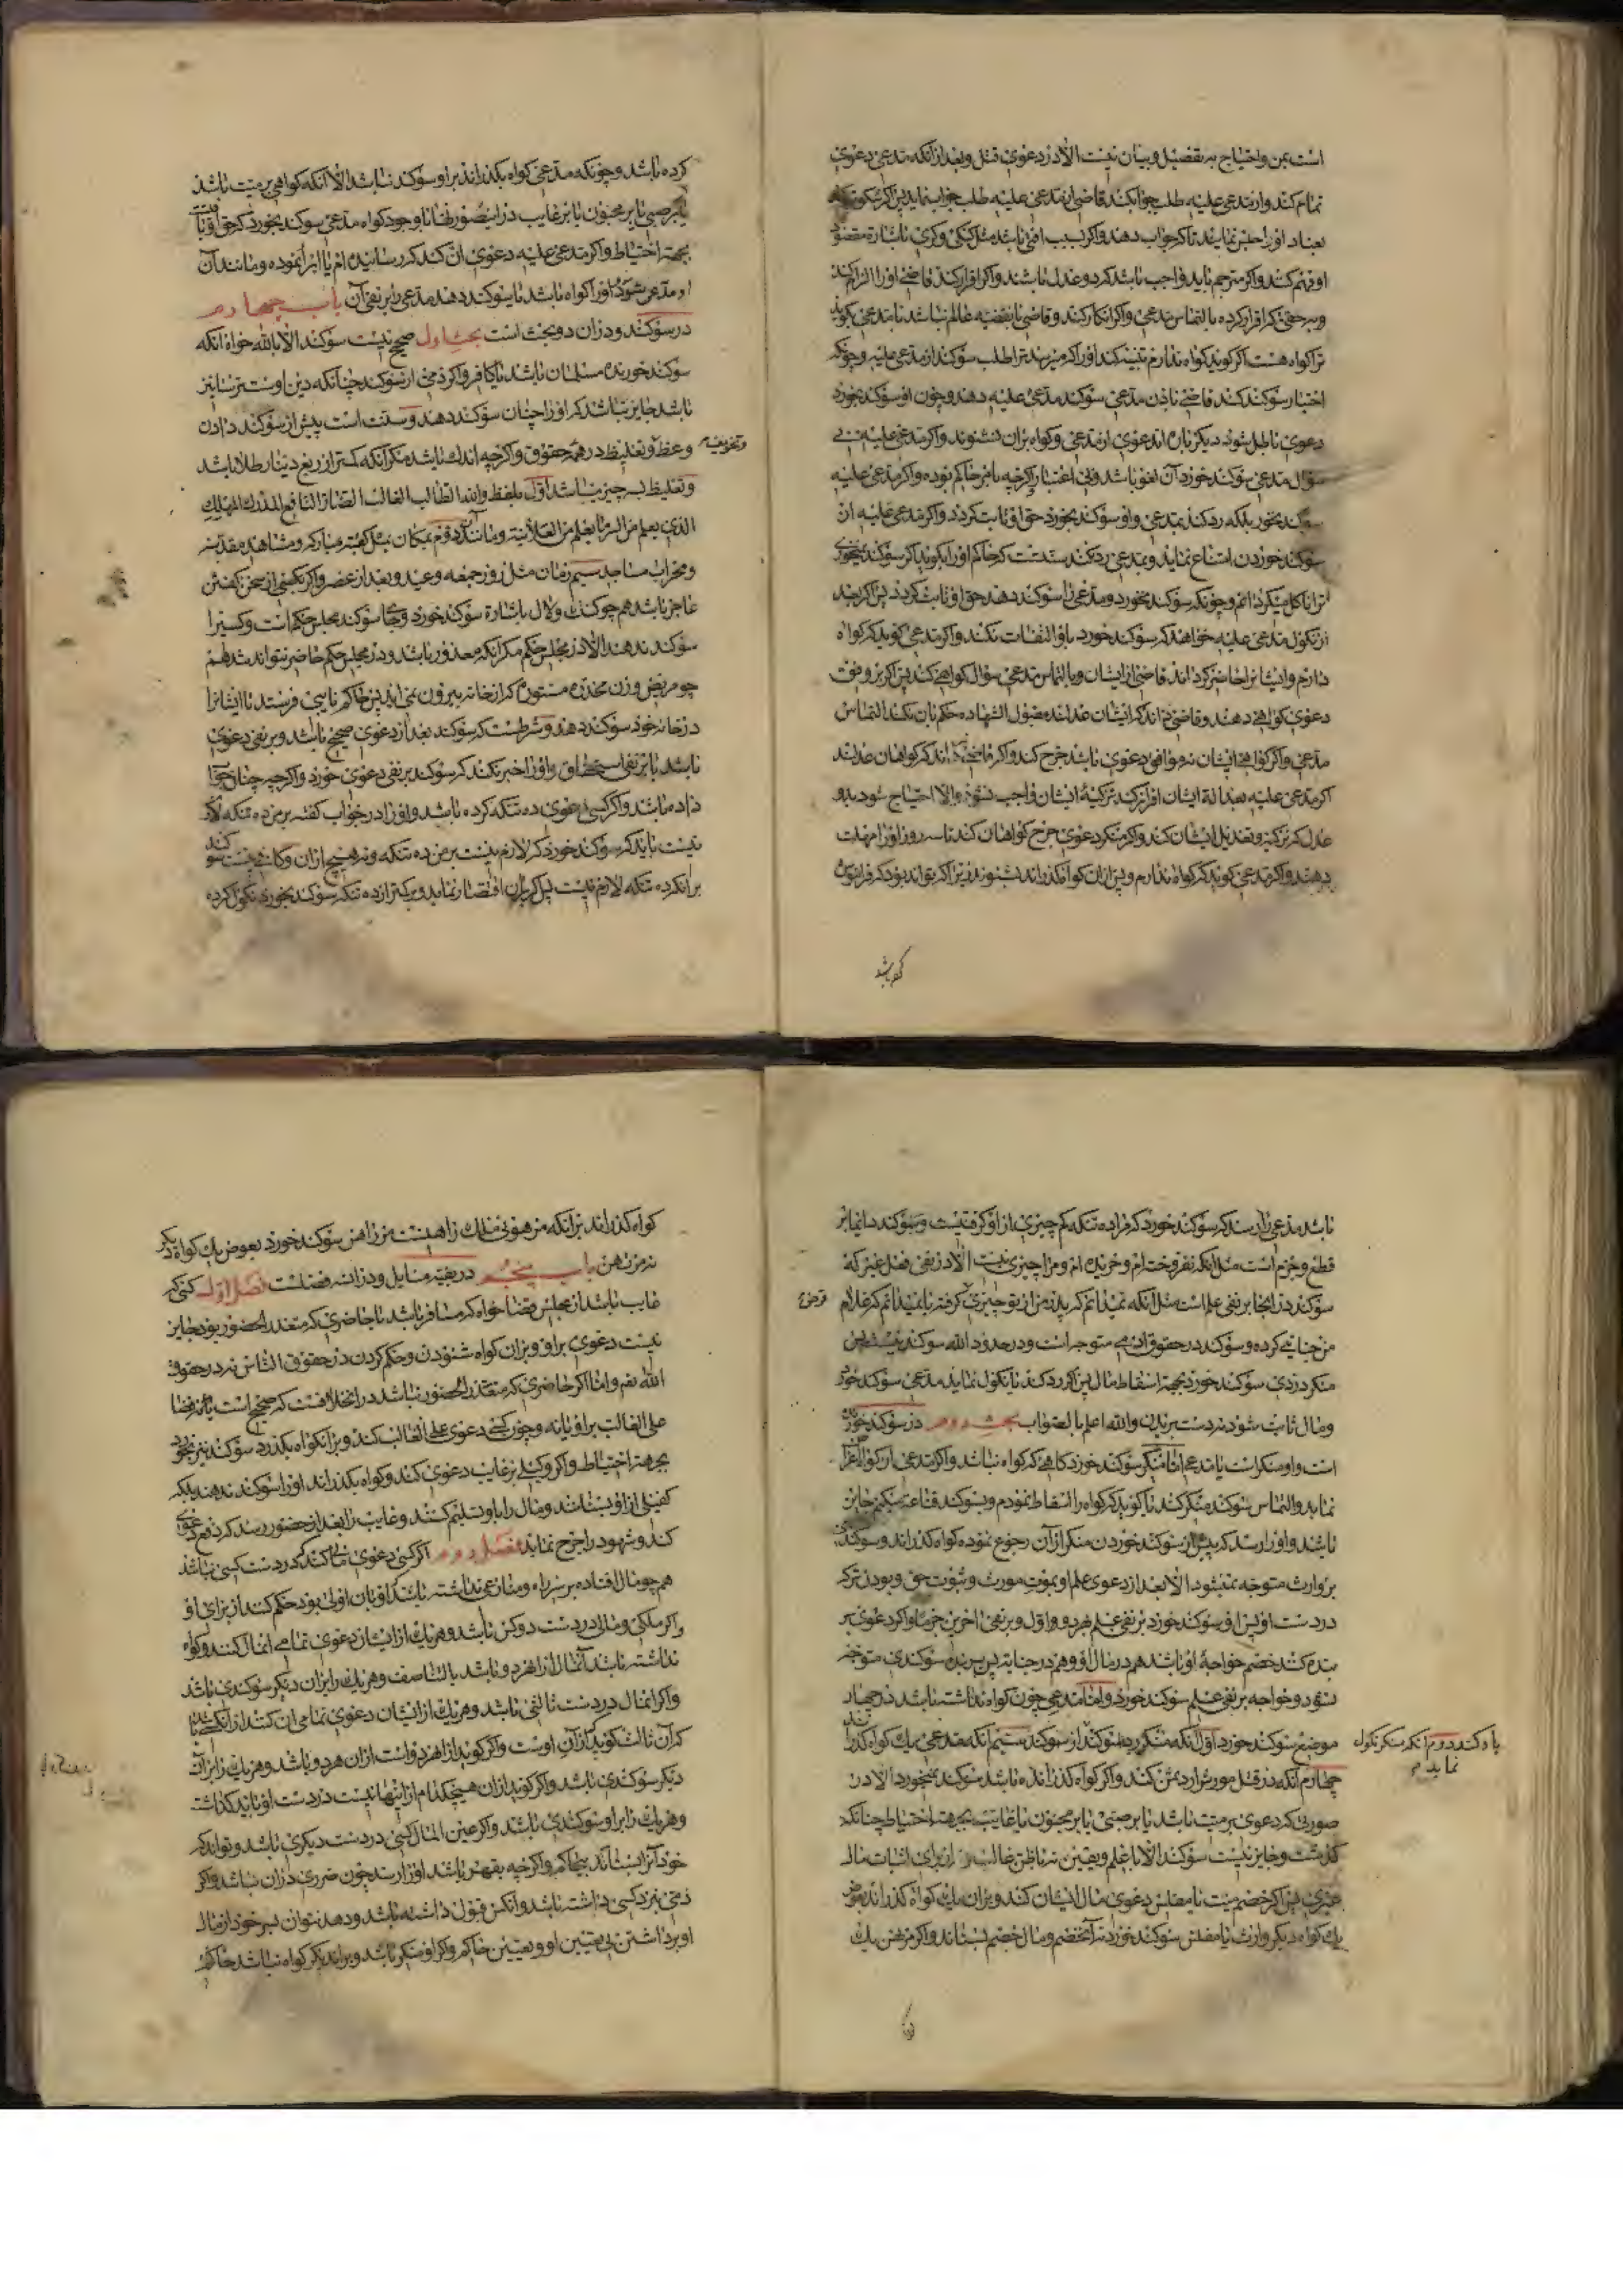 است بمن واحتیاج به تفضیل وبیان نیست الا در دعوی قتل وبعد ازانکه مدعی دعوی
تمام کند واز مدعی علیه طلب جواب کند قاضی از مدعی علیه طلب جواب نماید پس اگر سکوت کند
بعناد اورا حبس نمایند تا که جواب دهد واکر بسبب افتی باشد مثل کنکی وکری باشارة مقصود
او فهم کنند واکر مترجم باید واجب باشد که دو عدل باشند واکر اقرار کند قاضی اورا الزام کند
وبه حقی که اقرار کرده بالتماس مدعی واکر انکار کند وقاضی بقضیه عالم نباشد با مدعی بکوید
ترا کواه هست اکر کوید کواه ندارم تنبیه کند اورا که میرسد ترا طلب سوکند از مدعی علیه وچونکه
اختیار سوکند کند قاضی باذن مدعی سوکند مدعی علیه دهد وچون او سوکند بخورد
دعوی باطل شود دیکر باره اند دعوی از مدعی وکواه بران نشنوند واکر مدعی علیه بی
سؤال مدعی سوکند خورد آن لغو باشد وبی اعتبار اکرچه بامر حاکم بوده واکر مدعی علیه
سوکند نخورد بلکه رد کند بمدعی واو سوکند بخورد حق او ثابت کردد واکر مدعی علیه از
سوکند خوردن امتناع نماید وبمدعی رد نکند سنتست که حاکم اورا بکوید اکر سوکند نمیخوری
ترا ناکل میکردانم وچونکه سوکند نخورد ومدعی را سوکند دهد حق او ثابت کردد پس اکر بعد
از نکول مدعی علیه خواهد که سوکند خورد باو التفات نکند واکر مدعی کوید که کواه
دارم وایشانرا حاضر کرداند قاضی از ایشان وبا التماس مدعی سؤال کواهی کند پس اکر بر وفق
دعوی کواهی دهند وقاضی داند که ایشان عدلند مقبول الشهاده حکم بان بکند التماس
مدعی واکر کواهی ایشان نه موافق دعوی باشد طرح کند واکر قاضی داند که کواهان عدلند
اکر مدعی علیه بعدالة ایشان اقرار کند تزکیهٔ ایشان واجب نشود والا احتیاج شود بدو
عدل که تزکیه وتعدیل ایشان کند واکر منکر دعوی جرح کواهان کند تا سه روز اورا مهلت
دهند واکر مدعی کوید که کواه ندارم وپس ازان کواه کذراند بشنوند زیرا که تواند بود که فراموش
کرده باشد
کرده باشد وچونکه مدعی کواه بکذراند براو سوکند نباشد الا آنکه کواهی بر میت باشد
یا بر صبی یا بر مجنون یا بر غایب در اینصورتها باوجود کواه مدعی سوکند بخورد که حق او باقیست
بجهة احتیاط واکر مدعی علیه دعوی ان کند که رسانیده ام یا ابرا نموده ومانند آن
او مدعی شود اورا کواه باشد یا سوکند دهد مدعی را بر نفی آن باب چهارم
در سوکند ودران دو بحث است بحث اول صحیح نیست سوکند الا بالله خواه آنکه
سوکند خورنده مسلمان باشد یا کافر واکر ذمی از سوکند چنانکه دین اوست ترسانیز
باشد جایز باشد که اورا چنان سوکند دهند وسنت است پیش از سوکند دادن
وعظ وتغلیظ در همهٔ حقوق واکرچه اندک باشد مکر آنکه کمتر از ربع دینار طلا باشد
وتخویف
وتغلیظ بسه چیز میباشد اول بلفظ والله الطالب الغالب الضار النافع المدرک المهلک
الذی یعلم من السر ما یعلم من العلانیة ومانند آن دوم بمکان مثل کعبهٔ مبارکه ومشاهد مقدسه
ومحراب مساجد سیم زمان مثل روز جمعه وعید وبعد از عصر واکر کسی از سخن کفتن
عاجز باشد همچو کنک ولال باشارة سوکند خورد وجای سوکند مجلس حکم است وکسیرا
سوکند ندهند الا در مجلس حکم مکر آنکه معذور باشد ودر مجلس حکم حاضر نتواند شد همـ
چو مریض وزن مخدرهٔ مستوره که از خانه بیرون نمی اید پس حاکم نایبی فرستد تا ایشانرا
در خانه خود سوکند دهد وشرطست که سوکند بعد از دعوی صحیح باشد وبر نفی دعوی
باشد یا بر نفی استحقاق واورا جبر نکند که سوکند بر نفی دعوی خورد واکرچه چنان جواب
داده باشد واکر کسی دعوی ده تنکه کرده باشد واورا در جواب کفته بر من ده تنکه لازم
نیست باید که سوکند خورد که لازم نیست بر من ده تنکه ونه هیچ ازان وکافی نیست سوکند
برانکه ده تنکه لازم نیست پس اکر بران اقتصار نماید وبر کمتر از ده تنکه سوکند نخورد نکول کرده
باشد مدعی را رسد که سوکند خورد که مراده تنکه کم چیزی ازاو کرفتنیست وسوکند دائما بر
قطع وجزم است مثل آنکه نفروخته ام ونخریده ام ومرا چیزی نیست الا در نفی فعل غیر که
سوکند در انجا بر نفی علم است مثل آنکه نمیدانم که پدر من از تو چیزی کرفته یا نمیدانم که غلام
قرض
من جنایتی کرده وسوکند در حقوق ادمی متوجه است ودر حدود الله سوکند نیست پس
منکر دزدی سوکند خورد بجهة اسقاط مال پس اکر رد کند یا نکول نماید مدعی سوکند خورد
ومال ثابت شود نه دست بریدن والله اعلم بالصواب بحث دوم در سوکند خورنده
است واو منکر است یا مدعی اما منکر سوکند خورد کاهی که کواه نباشد واکر مدعی از کواه اعراض
نماید والتماس سوکند منکر کند یا کوید که کواه را اسقاط نمودم وبسوکند قناعت میکنم جایز
باشد واورا رسد که پیش از سوکند خوردن منکر از آن رجوع نموده کواه کذراند وسوکند
بر وارث متوجه نمیشود الا بعد از دعوی علم او بموت مورث وثبوت حق وبودن ترکه
در دست او پس او سوکند خورد بر نفی علم بهر دو اول وبر نفی اخرین جزما واکر دعوی بر
بنده کند خصم خواجهٔ او باشد هم در مال او وهم در جنایة پس بر بنده سوکندی متوجه
نشود وخواجه بر نفی علم سوکند خورد واما مدعی چون کواه نداشته باشد در چهار
موضع سوکند خورد اول آنکه منکر رد سوکند از سوکند سیم آنکه مدعی یک کواه کذراند
یاد کند دوم آنکه منکر نکول
نماید م
چهارم آنکه در قتل مورثش ارد ثمن کند واکر کواه کذرانده باشد سوکند نمیخورد الا در
صورتی که دعوی بر میت باشد یا بر صبی یا بر مجنون یا غایب بجهة احتیاط چنانکه
کذشت وجایز نیست سوکند الا با علم ویقین نه با ظن غالب ونه از برای اثبات مال
غیری پس اکر خصم میت یا مفلس دعوی مال ایشان کند وبران یک کواه کذراند بعوض
یک کواه دیکر وارث یا مفلس سوکند خورد نه آن خصم ومال خصم بستاند واکر مرتهن یک
کواه کذراند برانکه مرهونی ملک راهنست مر راهن سوکند خورد بعوض یک کواه دیکر
نه مرتهن باب پنجم در بقیهٔ مسایل ودران سه فصلست فصل اول کسی که
غایب باشد از مجلس قضا خواه که مسافر باشد یا حاضری که متعذر الحضور بود جایز
نیست دعوی براو وبران کواه شنودن وحکم کردن در حقوق الناس نه در حقوق
الله نعم واما اکر حاضری که متعذر الحضور نباشد دران خلافست که صحیح است یا نه قضا
علی الغائب براو یا نه وچون کسی دعوی علی الغائب کند وبر آن کواه بکذرد سوکند نیز بخورد
بجهة احتیاط واکر وکیلی بر غایب دعوی کند وکواه بکذراند اورا سوکند ندهند بلکه
کفیلی از او بستانند ومال را باو تسلیم کنند وغایب را بعد از حضور رسد که دفع دعوی
کند وشهود را جرح نماید فصل دوم اکر کسی دعوی مالی کند که در دست کسی نباشد
همچو مال افتاده بر سر راه ومنازعی نداشته باشد که او بان اولی بود حکم کند از برای او
واکر ملکی ومالی در دست دو کس باشد وهریک از ایشان دعوی تمامی انمال کنند وکواه
نداشته باشد آنمال از آن هر دو باشد بالتناصف وهریک را بران دیکر سوکندی باشد
واکر انمال در دست ثالثی باشد وهریک از ایشان دعوی تمامی ان کنند ازانکس باشد
که آن ثالث کوید از آن اوست واکر کوید از هر دو است از ان هر دو باشد وهریک را بران
دیکر سوکندی باشد واکر کوید ازان هیچکدام از اینها نیست در دست او باید کذاشت
وهریک را براو سوکندی باشد واکر عین المال کسی در دست دیکری باشد وتواند که
خود آنرا بستاند بیحاکم واکرچه بقهر باشد اورا رسد چون ضرری دران نباشد واکر
دینی نزد کسی داشته باشد وانکس قبول داشته باشد ودهد نتوان بسر خود از مال
او برداشتن بی تعیین او وبتعیین حاکم واکر او منکر باشد وبراو دیکر کواه نباشد حاکم